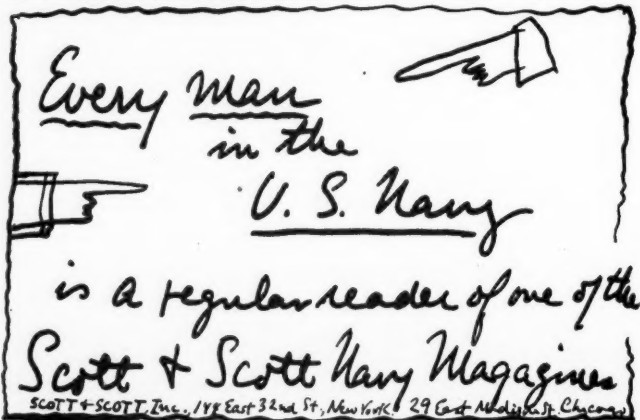 Every man
in the
U. S. Navy
is a regular reader of one of the
Scott & Scott Navy Magazines
SCOTT & SCOTT, Inc., East 32nd St., New York. 29 East Madison St. Chicago